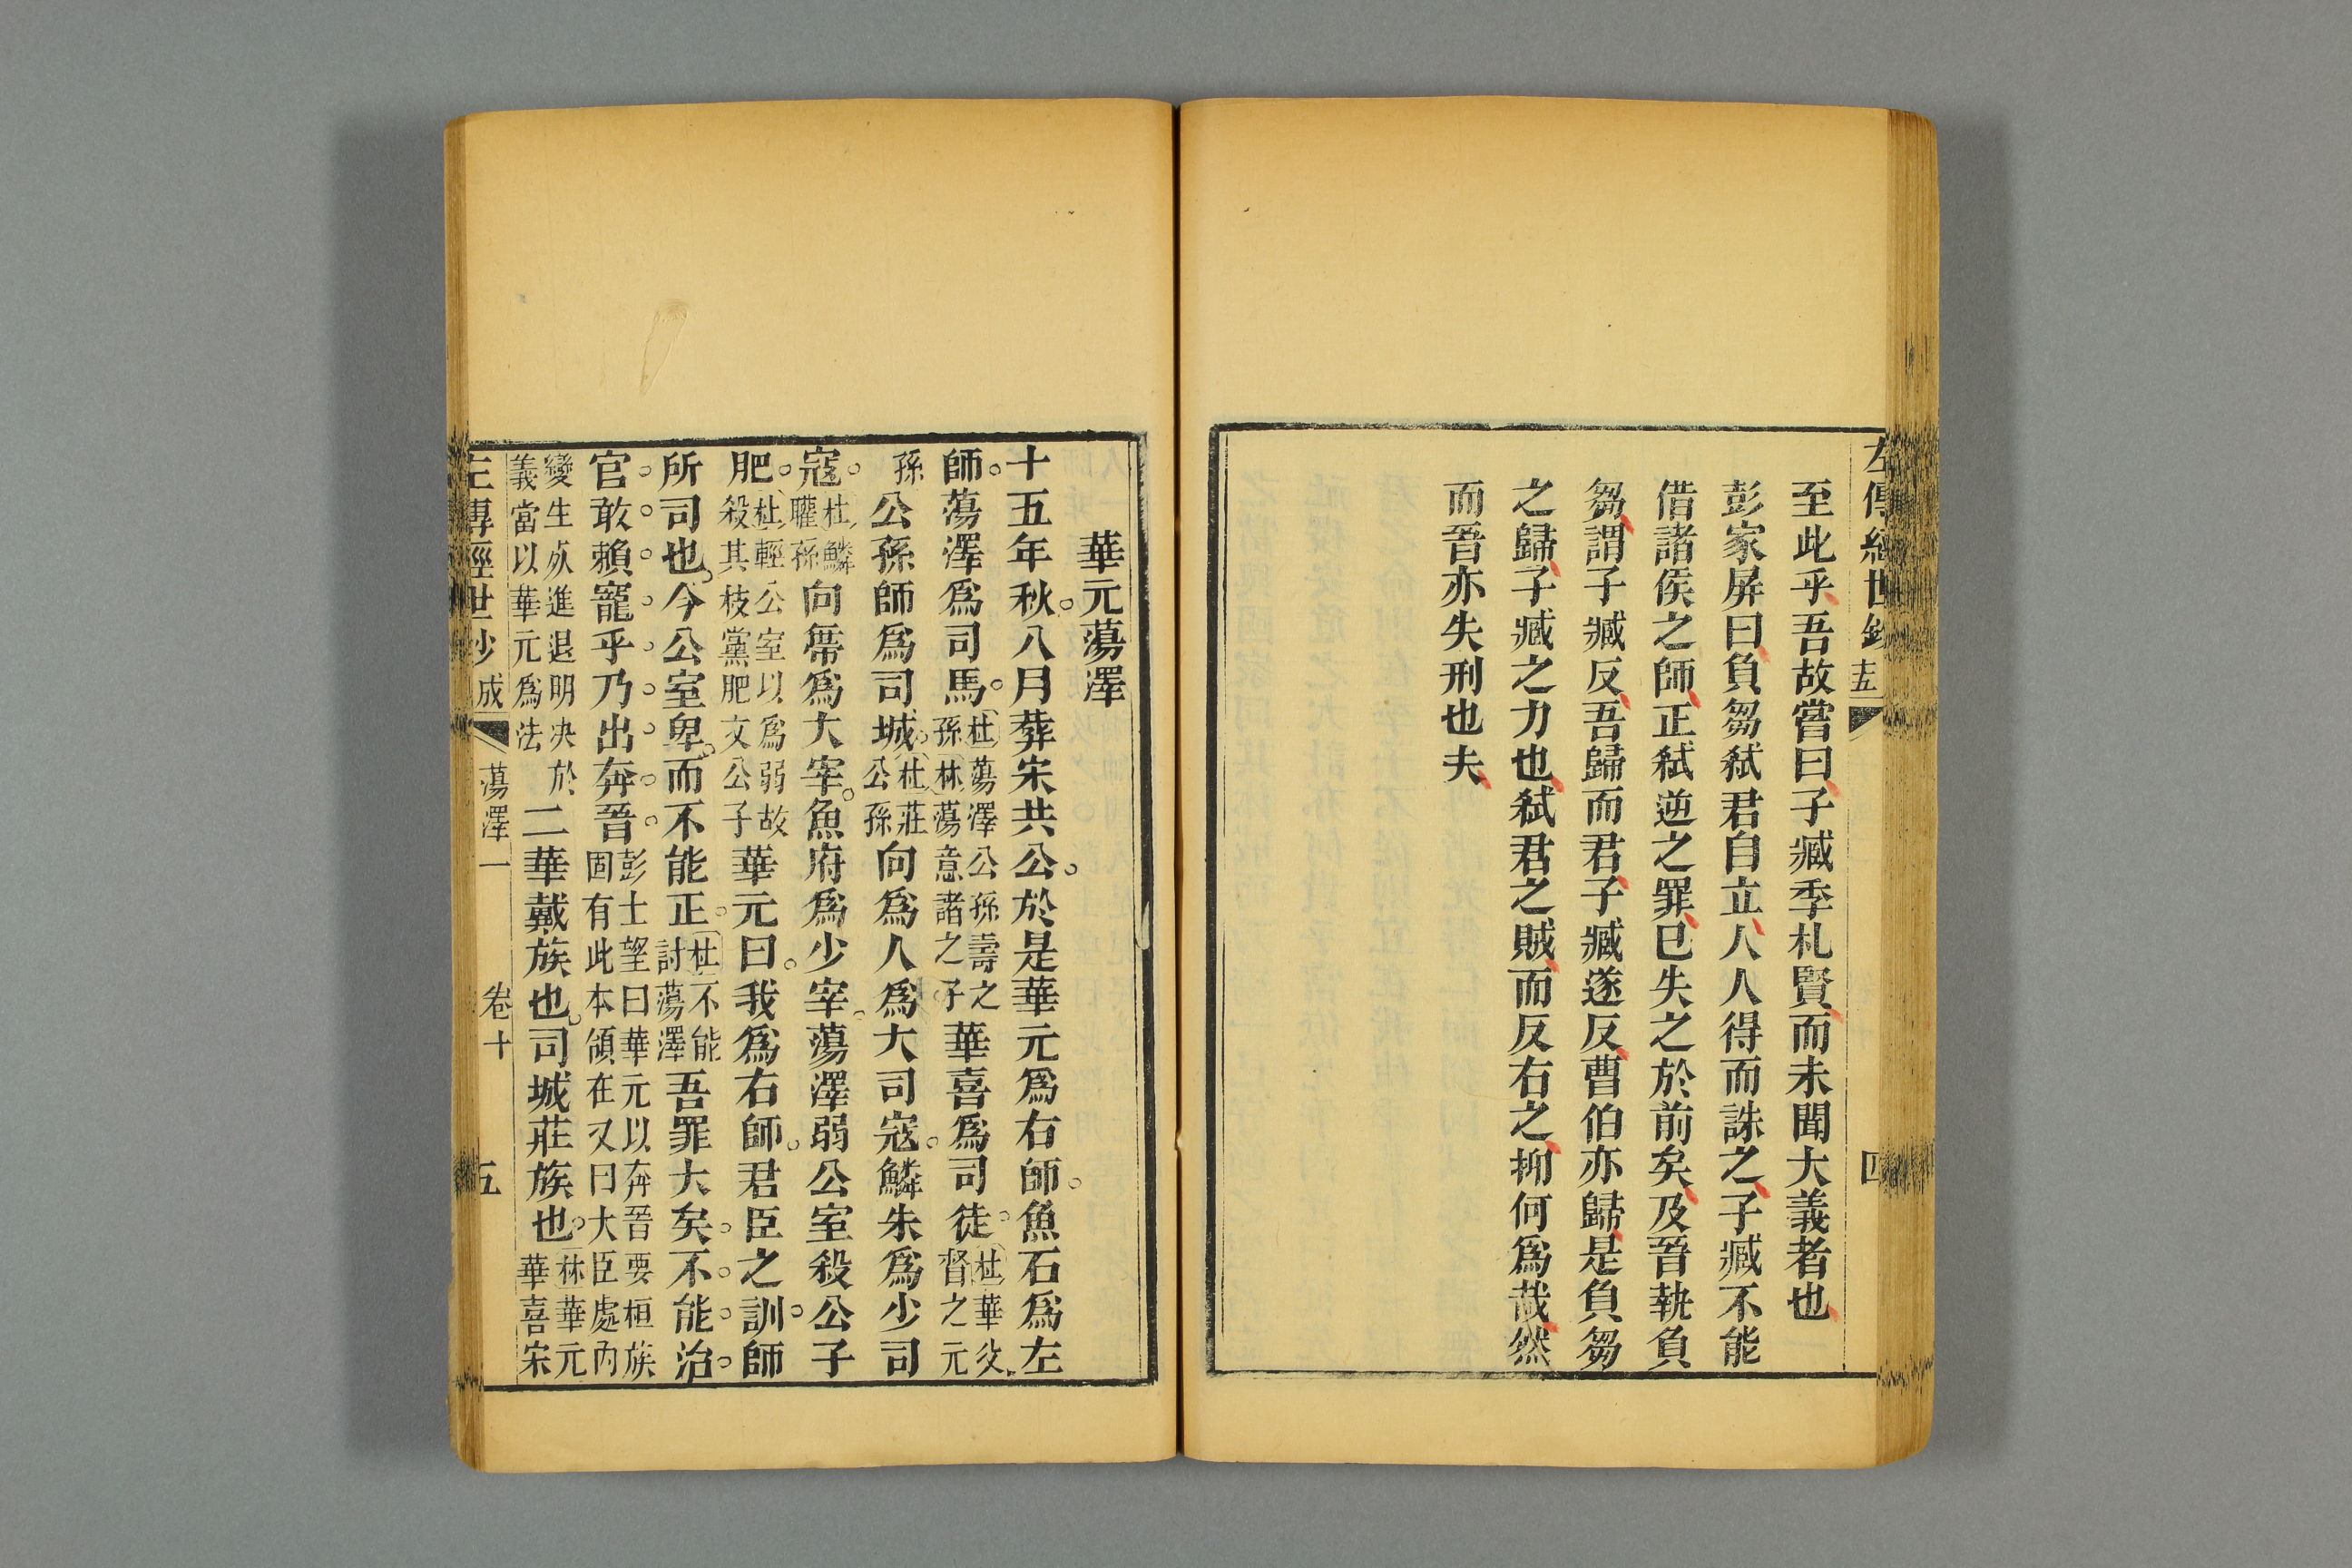 左傳經世鈔 十五 四
至此乎吾故嘗曰子臧季札賢而未聞大義者也
彭家屏曰負芻弒君自立人人得而誅之子臧不能
借諸侯之師正弒逆之罪已失之於前矣及晉執負
芻謂子臧反吾歸而君子臧遂反曹伯亦歸是負芻
之歸子臧之力也弒君之賊而反右之抑何為哉然
而晉亦失刑也夫
華元蕩澤
十五年秋八月葬宋共公於是華元爲右師魚石爲左
師蕩澤爲司馬杜蕩澤公孫壽之孫林蕩意諸之子華喜爲司徒杜華父督之元
孫公孫師爲司城杜莊公孫向爲人爲大司寇鱗朱爲少司
寇杜鱗矔孫向帶爲大宰魚府爲少宰蕩澤弱公室殺公子
肥杜輕公室以爲弱故殺其枝黨肥文公子華元曰我爲右師君臣之訓師
所司也今公室卑而不能正杜不能討蕩澤吾罪大矣不能治
官敢賴寵乎乃出奔晉彭士望曰華元以奔晉要桓族固有此本領在又曰大臣處內
變生必進退明決於義當以華元爲法二華戴族也司城莊族也林華元華喜宋
左傳經世鈔 成 蕩澤一 卷十 五